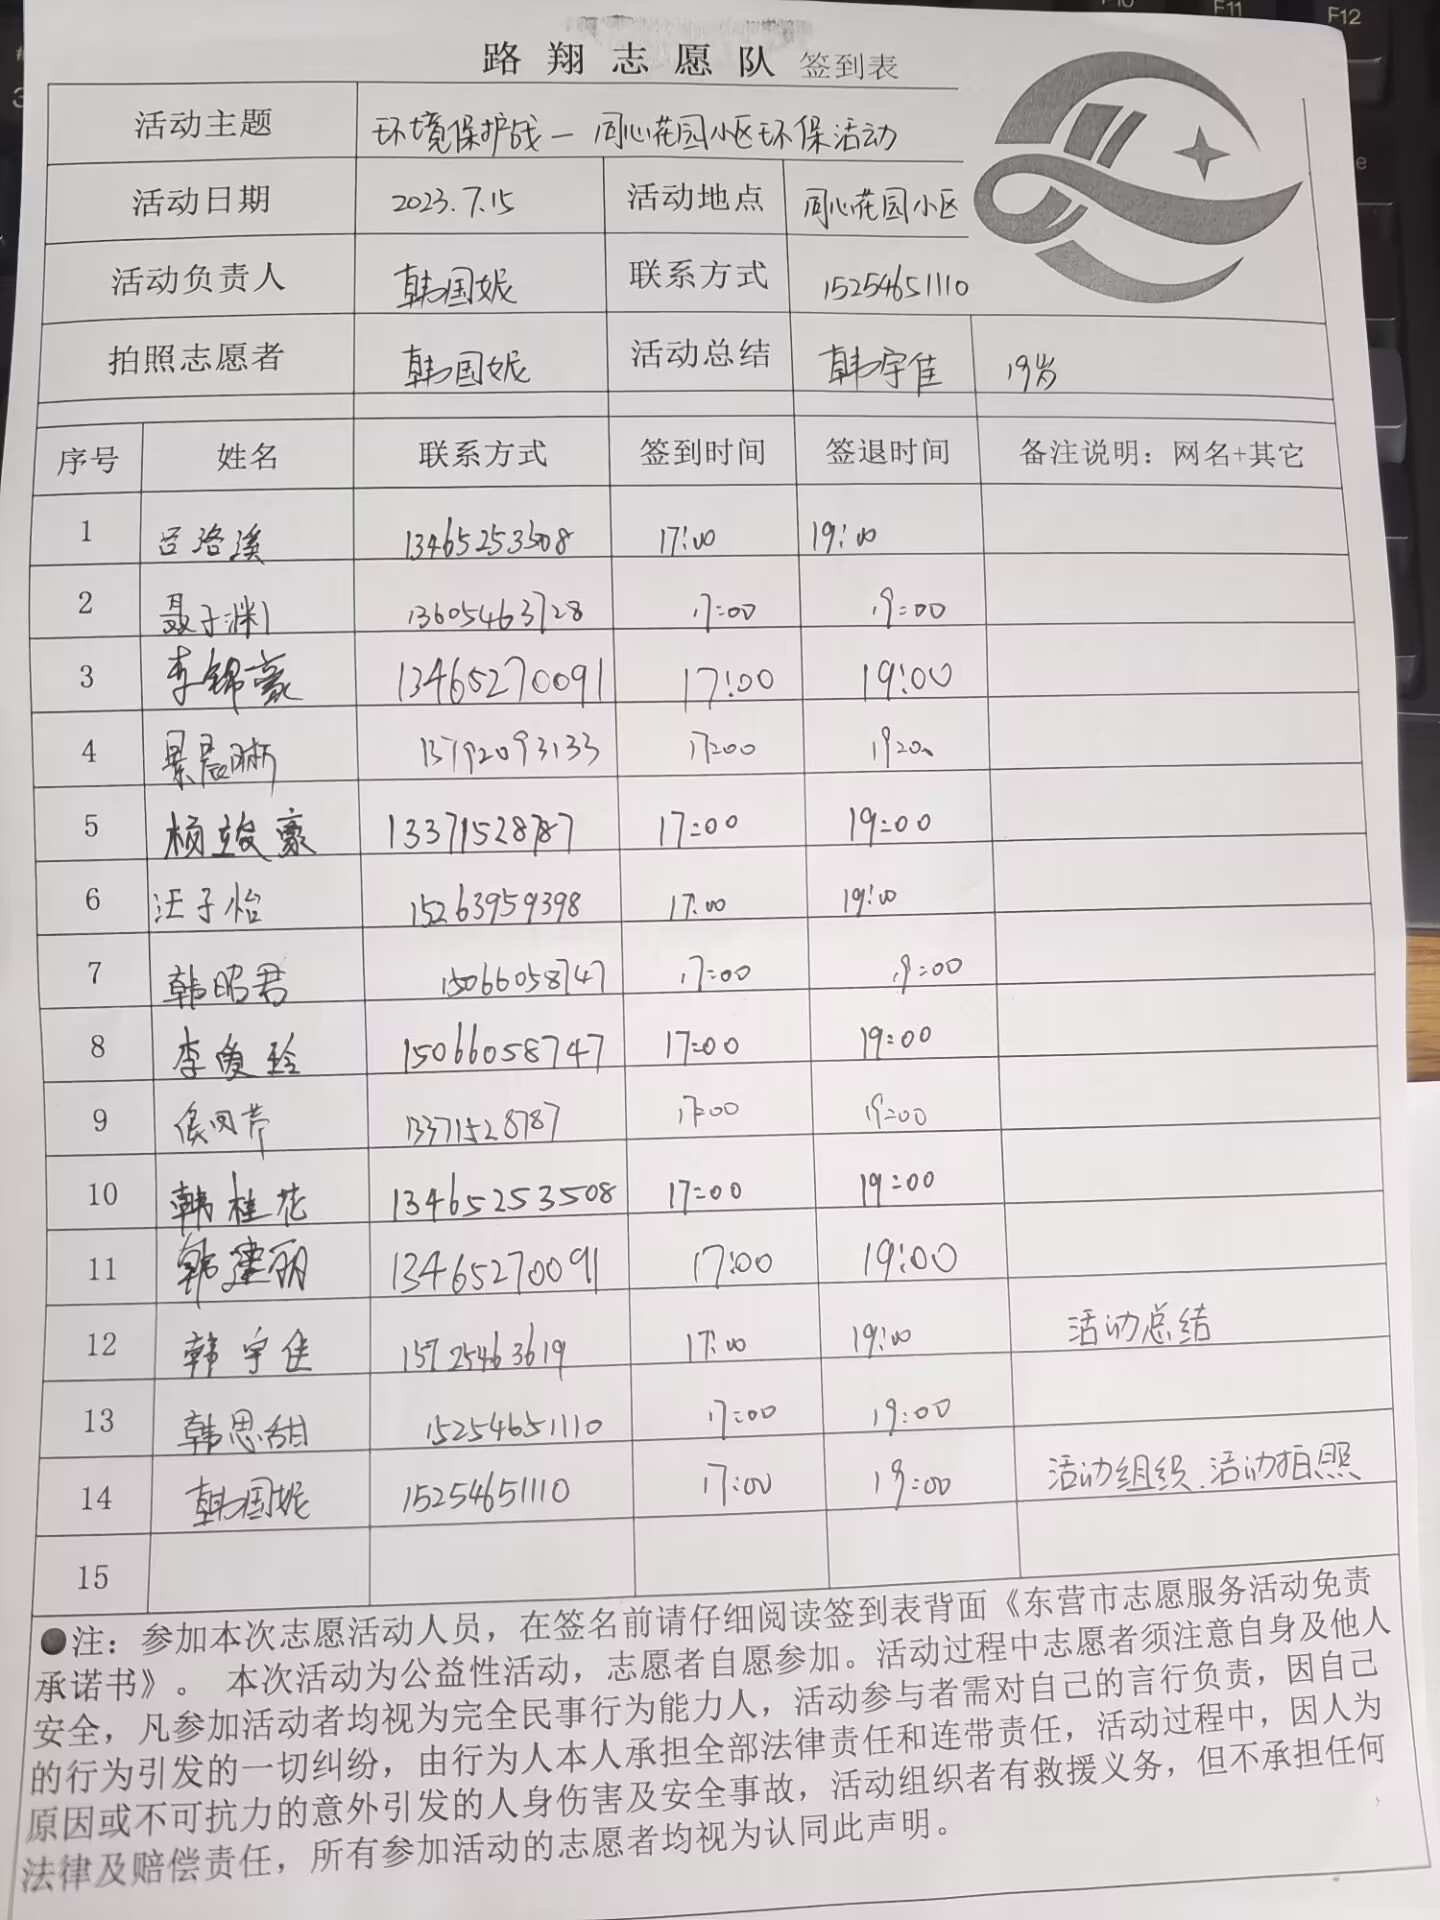 路翔志愿队 签到表
活动主题 环境保护战—同心花园小区环保活动
活动日期 2023.7.15 活动地点 同心花园小区
活动负责人 韩国妮 联系方式 15254651110
拍照志愿者 韩国妮 活动总结 韩宇佳 19岁
序号 姓名 联系方式 签到时间 签退时间 备注说明：网名+其它
1 吕洛溪 13465253508 17:00 19:00
2 聂子渊 13605463728 17:00 19:00
3 李锦豪 13465270091 17:00 19:00
4 景晨晰 13792093133 17:00 19:00
5 杨竣豪 13371528787 17:00 19:00
6 汪子怡 15263959398 17:00 19:00
7 韩昭君 15066058747 17:00 19:00
8 李爱玲 15066058747 17:00 19:00
9 13371528787 17:00 19:00
10 韩桂花 13465253508 17:00 19:00
11 韩建丽 13465270091 17:00 19:00
12 韩宇佳 15725463619 17:00 19:00 活动总结
13 韩思甜 15254651110 17:00 19:00
14 韩国妮 15254651110 17:00 19:00 活动组织.活动拍照
15
●注：参加本次志愿活动人员，在签名前请仔细阅读签到表背面《东营市志愿服务活动免责
承诺书》。 本次活动为公益性活动，志愿者自愿参加。活动过程中志愿者须注意自身及他人
安全，凡参加活动者均视为完全民事行为能力人，活动参与者需对自己的言行负责，因自己
的行为引发的一切纠纷，由行为人本人承担全部法律责任和连带责任，活动过程中，因人为
原因或不可抗力的意外引发的人身伤害及安全事故，活动组织者有救援义务，但不承担任何
法律及赔偿责任，所有参加活动的志愿者均视为认同此声明。
F10 F11 F12